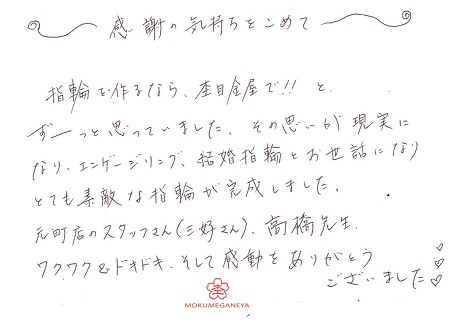 感謝の気持ちをこめて
指輪を作るなら、杢目金屋で!! と、
ずーっと思っていました。その思いが現実に
なり、エンゲージリング、結婚指輪とお世話になり
とても素敵な指輪が完成しました。
元町店のスタッフさん(三好さん)、高橋先生、
ワクワク&ドキドキ、そして感動をありがとう
ございました♡♡♡
MOKUMEGANEYA